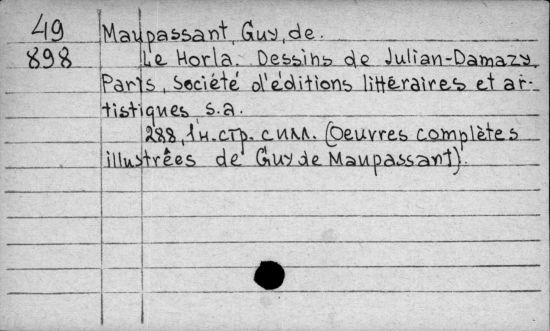 49 Maupassant, Guy, de.
898 Le Horla. Dessins de Julian-Damazy.
Paris, Société d'éditions littéraires et ar-
tistiques, s.a.
288, 1 н. стр. с илл. (Oeuvres complètes
illustrêes de Guy de Maupassant).